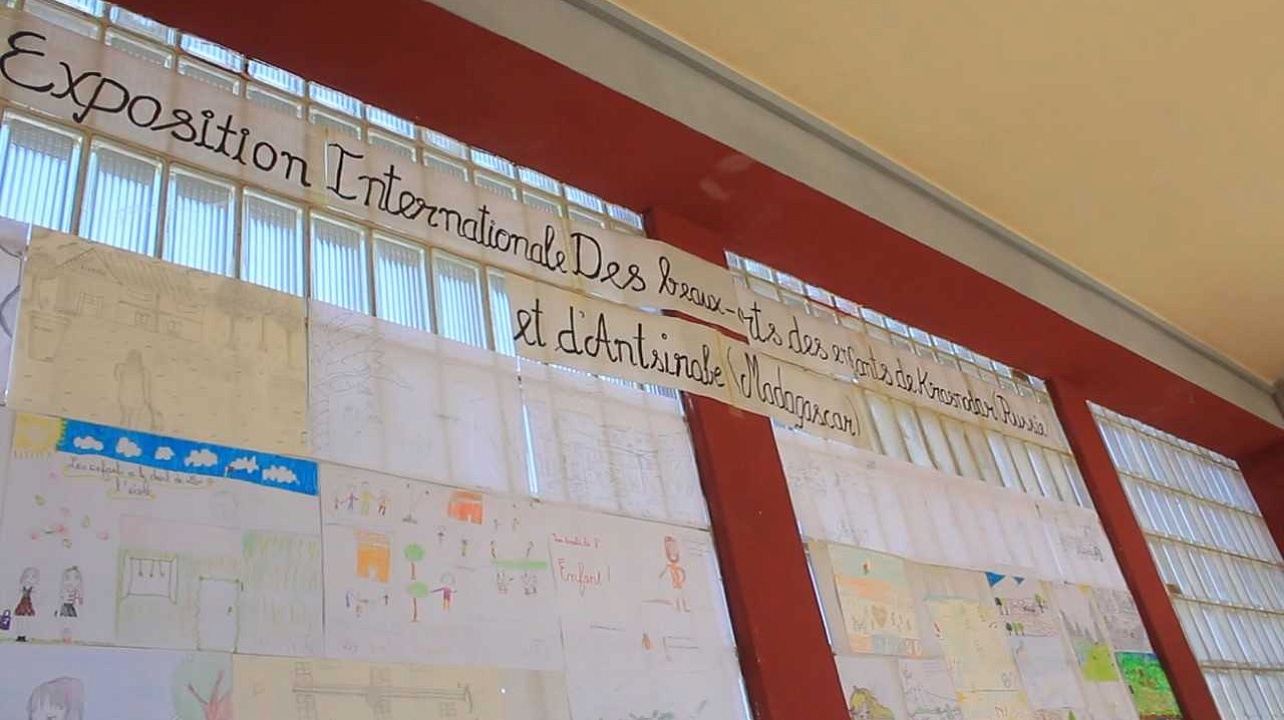 Exposition Internationale Des beaux-arts des enfants de Krasnodar Russie
et d'Antsirabe (Madagascar)
Les enfants a le droit de
l'école
Enfant!